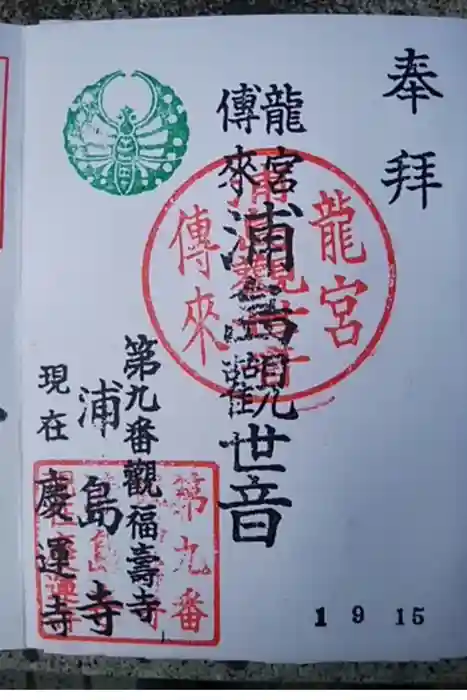 奉拜
龍宮
傳來
浦島觀世音
龍宮
浦島觀世音
傳來
第九番觀福壽寺
浦島寺
現在慶運寺
第九番
1 9 15